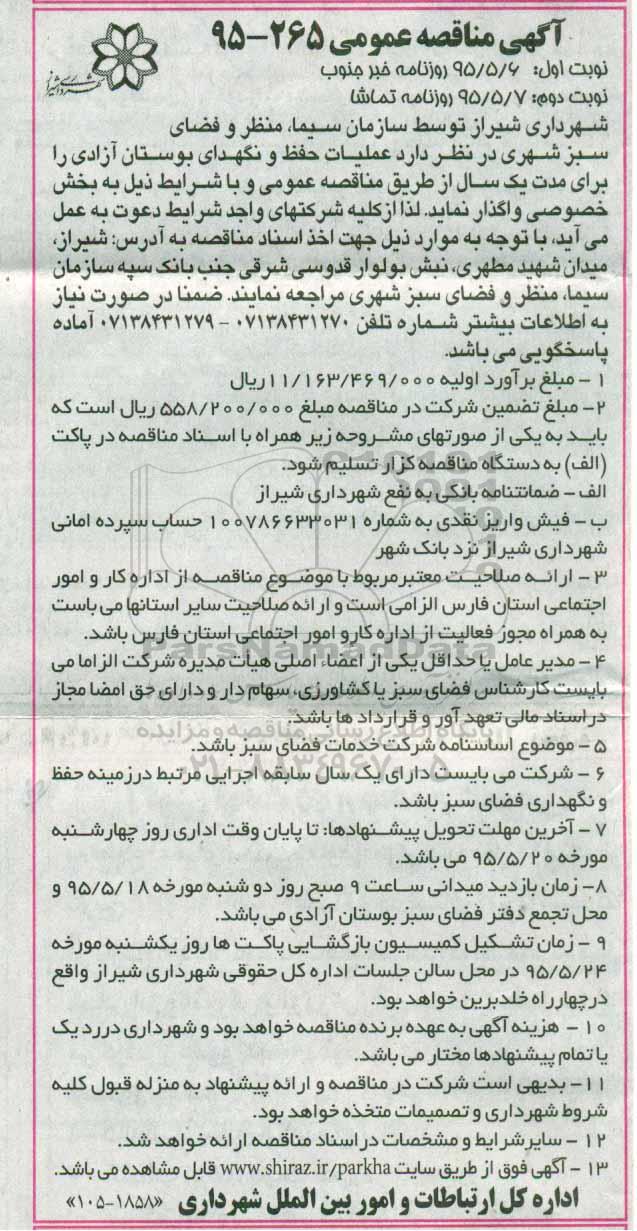 آگهی مناقصه عمومی ۲۶۵-۹۵
نوبت اول: ۹۵/۵/۶ روزنامه خبر جنوب
نوبت دوم: ۹۵/۵/۷ روزنامه تماشا
شهرداری شیراز
شهرداری شیراز توسط سازمان سیما، منظر و فضای
سبز شهری در نظر دارد عملیات حفظ و نگهدای بوستان آزادی را
برای مدت یک سال از طریق مناقصه عمومی و با شرایط ذیل به بخش
خصوصی واگذار نماید. لذا ازکلیه شرکتهای واجد شرایط دعوت به عمل
می آید، با توجه به موارد ذیل جهت اخذ اسناد مناقصه به آدرس: شیراز،
میدان شهید مطهری، نبش بولوار قدوسی شرقی جنب بانک سپه سازمان
سیما، منظر و فضای سبز شهری مراجعه نمایند. ضمنا در صورت نیاز
به اطلاعات بیشتر شماره تلفن ۰۷۱۳۸۴۳۱۲۷۰ - ۰۷۱۳۸۴۳۱۲۷۹ آماده
پاسخگویی می باشد.
۱ - مبلغ برآورد اولیه ۱۱/۱۶۳/۴۶۹/۰۰۰ ریال
۲- مبلغ تضمین شرکت در مناقصه مبلغ ۵۵۸/۲۰۰/۰۰۰ ریال است که
باید به یکی از صورتهای مشروحه زیر همراه با اسناد مناقصه در پاکت
(الف) به دستگاه مناقصه گزار تسلیم شود.
الف - ضمانتنامه بانکی به نفع شهرداری شیراز
ب - فیش واریز نقدی به شماره ۱۰۰۷۸۶۶۳۳۰۳۱ حساب سپرده امانی
شهرداری شیراز نزد بانک شهر
۳ - ارائه صلاحیت معتبر مربوط با موضوع مناقصه از اداره کار و امور
اجتماعی استان فارس الزامی است و ارائه صلاحیت سایر استانها می باست
به همراه مجوز فعالیت از اداره کارو امور اجتماعی استان فارس باشد.
ParsNamadData
۴ - مدیر عامل یا حداقل یکی از اعضاء اصلی هیأت مدیره شرکت الزاما می
بایست کارشناس فضای سبز یا کشاورزی، سهام دار و دارای حق امضا مجاز
در اسناد مالی تعهد آور و قرارداد ها باشد.
پایگاه اطلاع رسانی مناقصه و مزایده
۵ - موضوع اساسنامه شرکت خدمات فضای سبز باشد.
۰۲۱-۸۸۳۴۹۶۷۰-۵
۶ - شرکت می بایست دارای یک سال سابقه اجرایی مرتبط درزمینه حفظ
و نگهداری فضای سبز باشد.
۷ - آخرین مهلت تحویل پیشنهادها: تا پایان وقت اداری روز چهارشنبه
مورخه ۹۵/۵/۲۰ می باشد.
۸- زمان بازدید میدانی ساعت ۹ صبح روز دو شنبه مورخه ۹۵/۵/۱۸ و
محل تجمع دفتر فضای سبز بوستان آزادی می باشد.
۹ - زمان تشکیل کمیسیون بازگشایی پاکت ها روز یکشنبه مورخه
۹۵/۵/۲۴ در محل سالن جلسات اداره کل حقوقی شهرداری شیراز واقع
درچهارراه خلدبرین خواهد بود.
۱۰ - هزینه آگهی به عهده برنده مناقصه خواهد بود و شهرداری دررد یک
یا تمام پیشنهادها مختار می باشد.
۱۱- بدیهی است شرکت در مناقصه و ارائه پیشنهاد به منزله قبول کلیه
شروط شهرداری و تصمیمات متخذه خواهد بود.
۱۲ - سایرشرایط و مشخصات در اسناد مناقصه ارائه خواهد شد.
۱۳ - آگهی فوق از طریق سایت www.shiraz.ir/parkha قابل مشاهده می باشد.
اداره کل ارتباطات و امور بین الملل شهرداری «۱۸۵۸-۱۰۵»